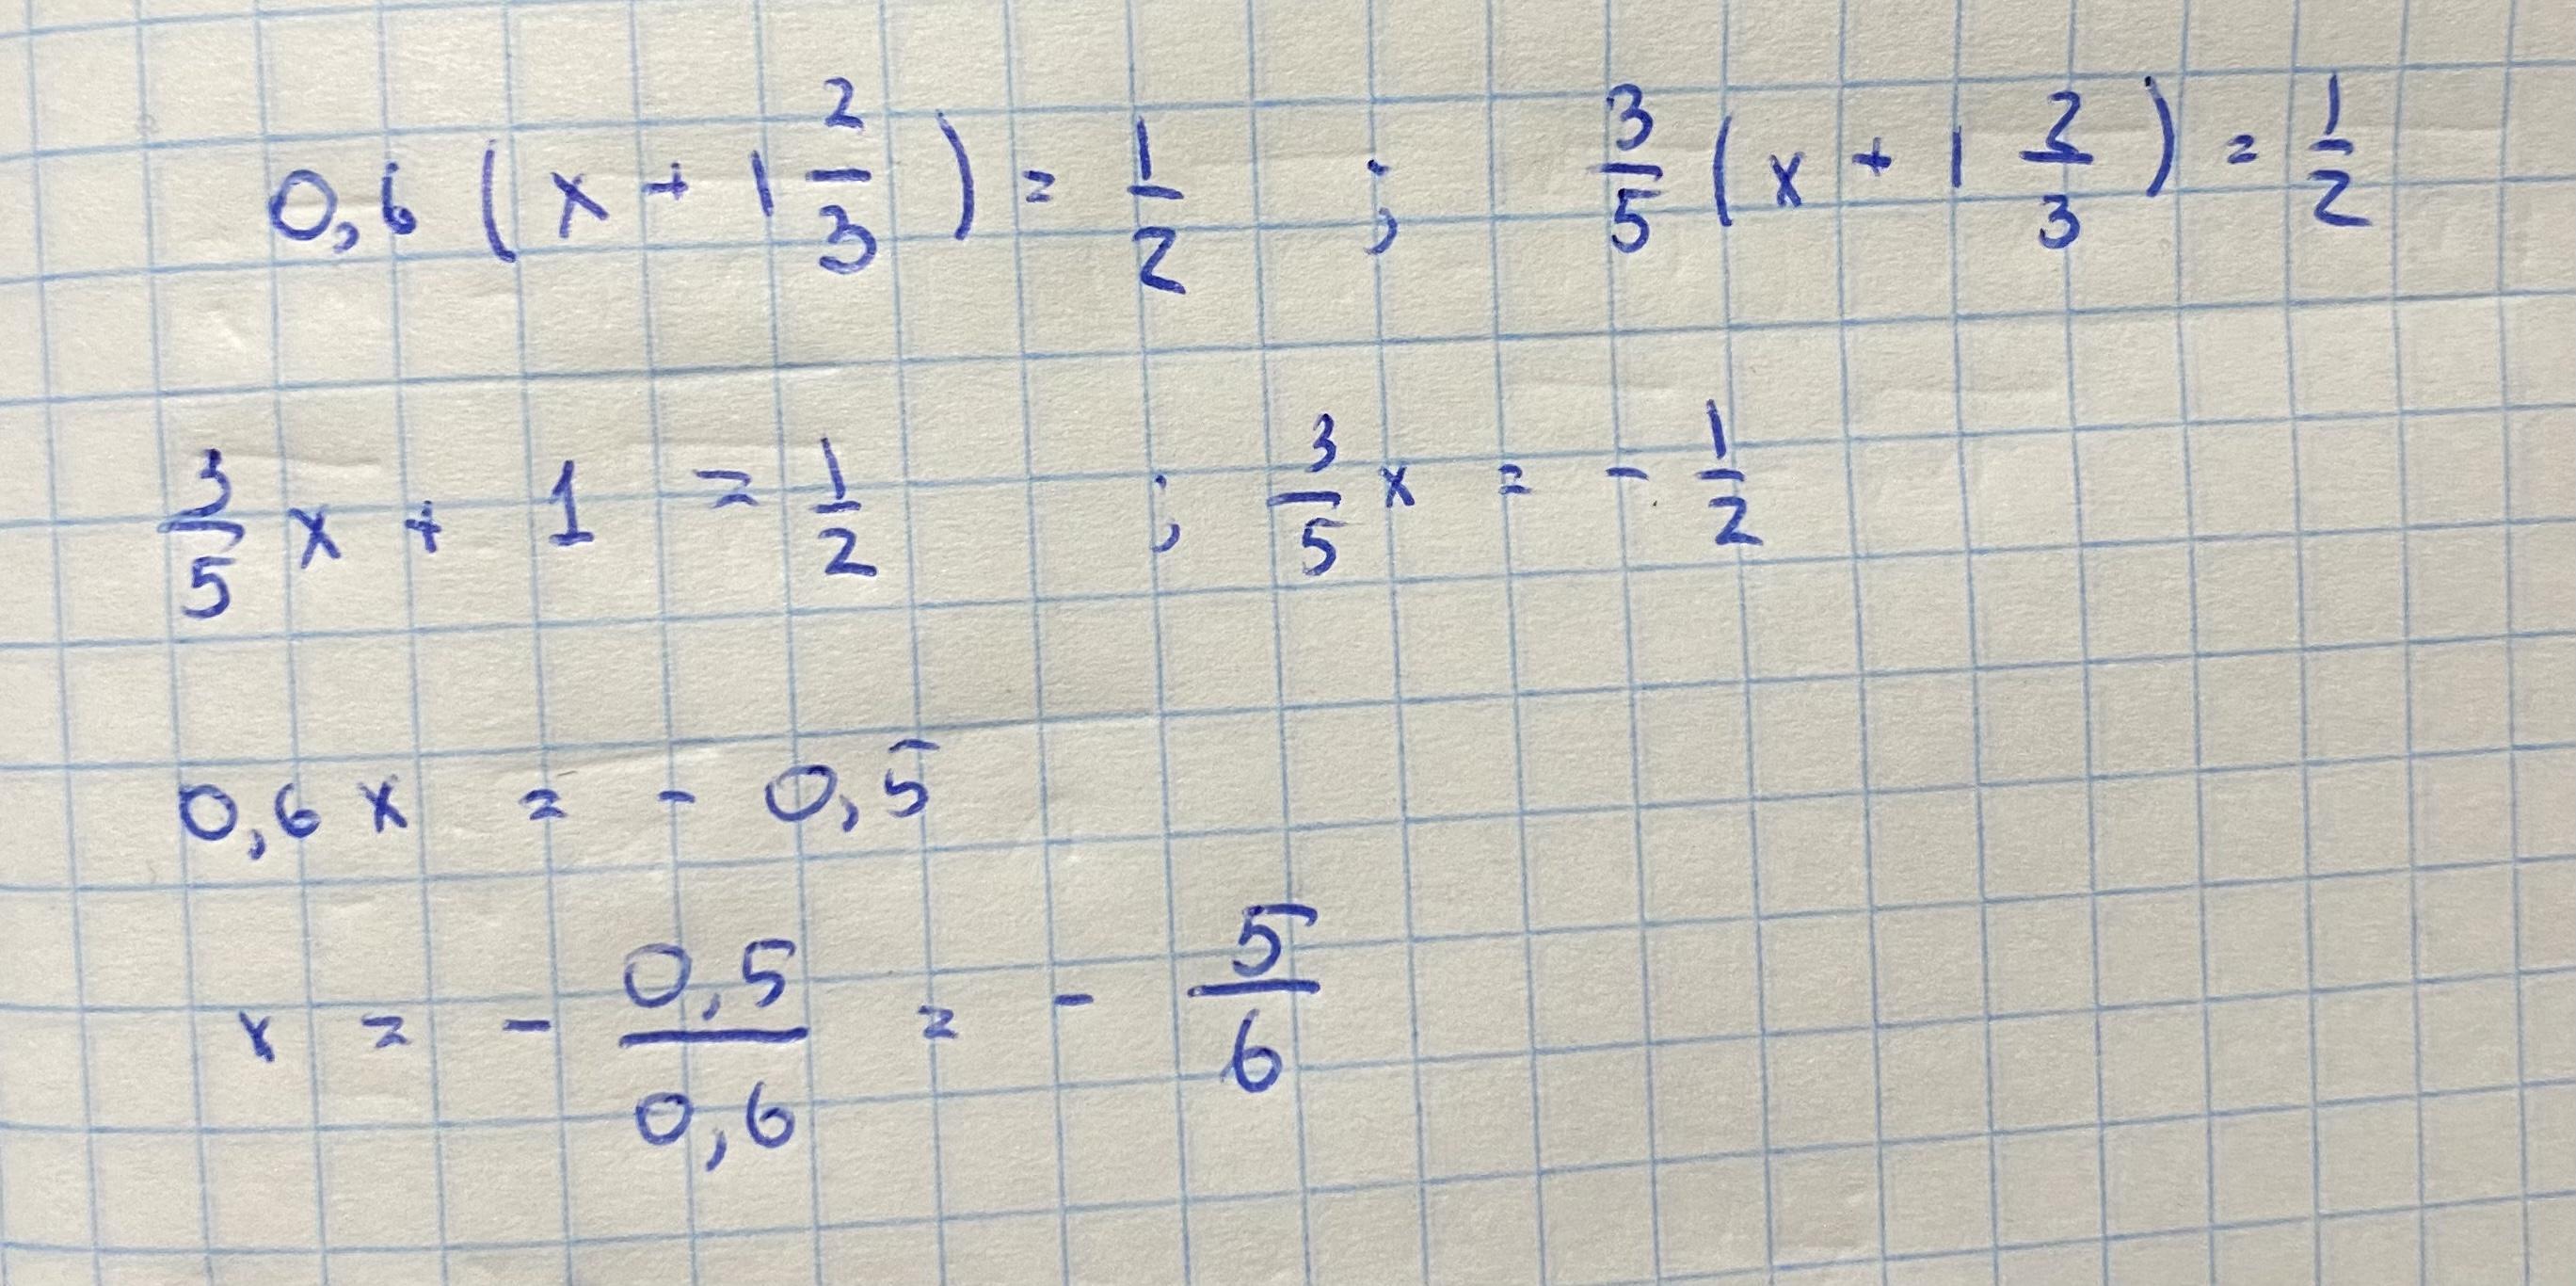 0,6 (x + 1 2/3) = 1/2 ; 3/5 (x + 1 2/3) = 1/2
3/5 x + 1 = 1/2 ; 3/5 x = - 1/2
0,6 x = - 0,5
x = - 0,5/0,6 = - 5/6